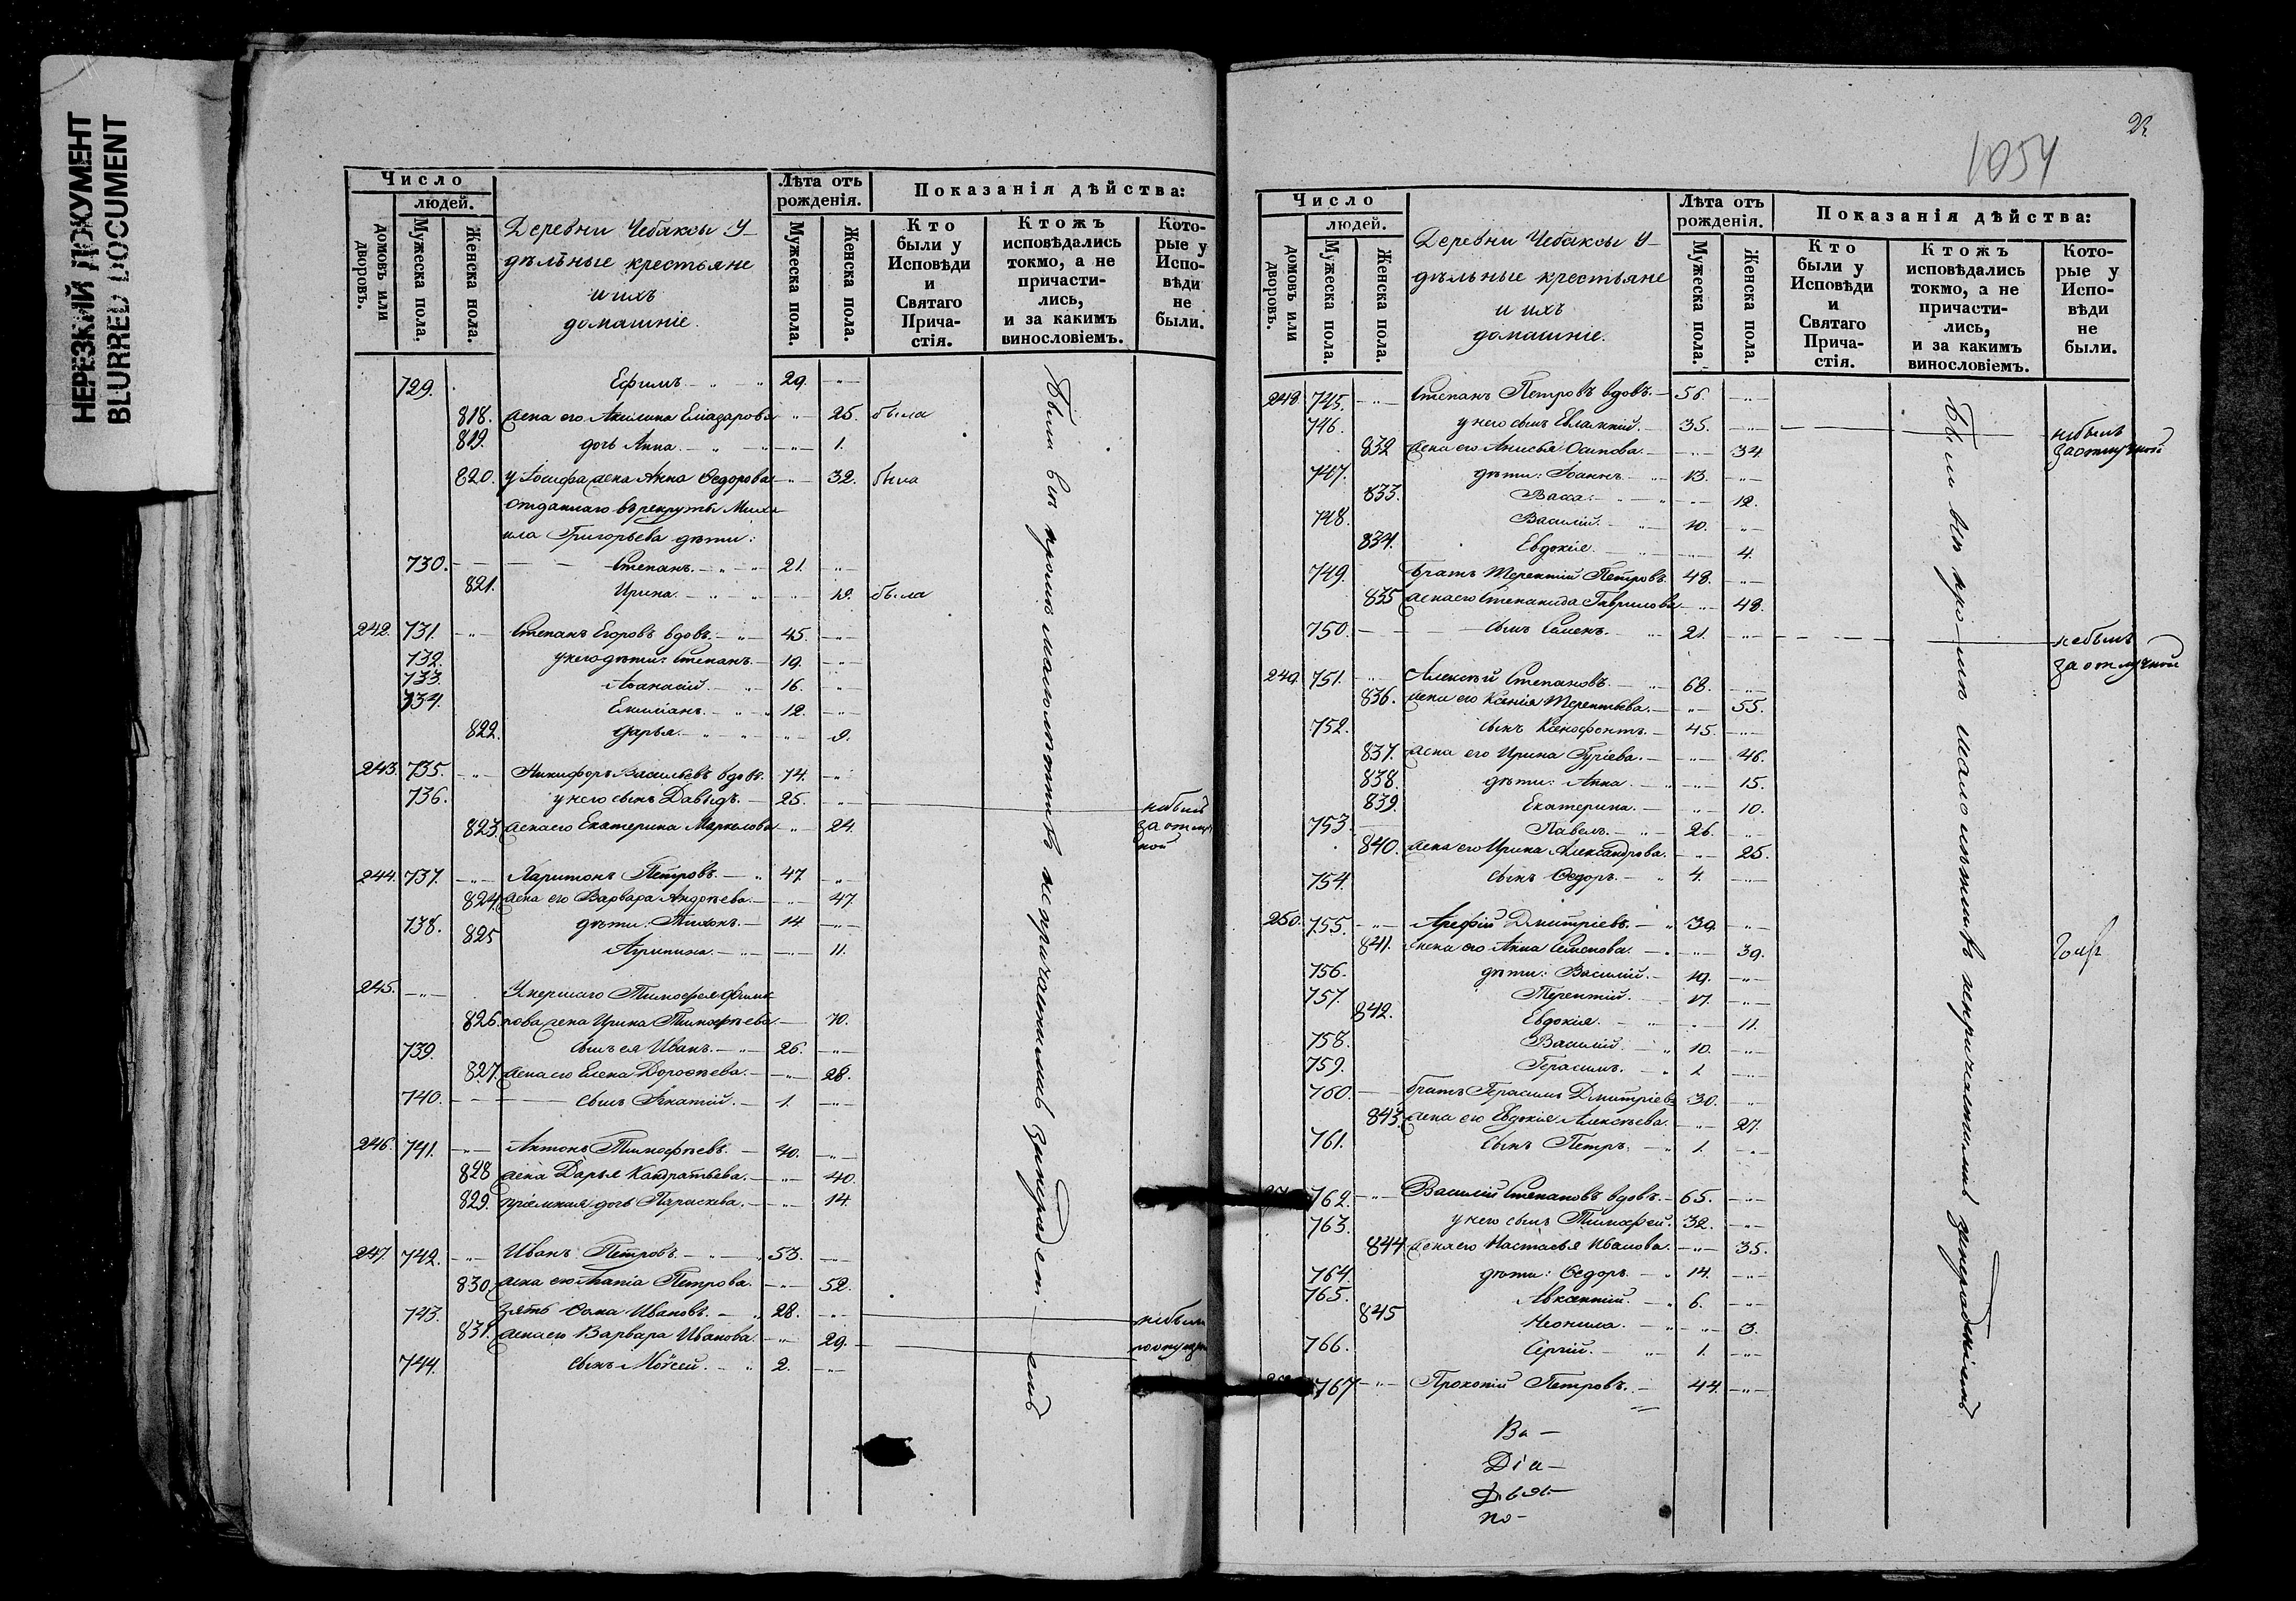 НЕРЕЗКИЙ ДОКУМЕНТ
BLURRED DOCUMENT
Число
людей.
домовъ или дворовъ.
Мужеска пола.
Женска пола.
Деревни Чебаксы У-
дѣльные крестьяне
и ихъ
домашніе.
Лѣта отъ рожденія.
Мужеска пола.
Женска пола.
Показанія дѣйства:
Кто были у Исповѣди и Святаго Прича-стія.
Ктожъ исповѣдались токмо, а не причасти-лись, и за какимъ винословіемъ.
Кото-рые у Испо-вѣди не были.
729. Ефимъ. 29.
818. жена его Акилина Елиазарова 25. была
819. дочь Анна. 1.
820. у Іосифа жена Анна Ѳедорова 32. была
отданнаго въ рекруты Миха-
ила Григорьева дѣти:
730. Степанъ. 21.
821. Ирина. 19. была
242. 731. Степанъ Егоровъ вдовъ. 45.
732. у него дѣти: Степанъ. 19.
733. Аѳанасій. 16.
734. Емиліанъ. 12.
822. Дарья. 9.
243. 735. Никифоръ Васильевъ вдовъ. 74.
736. у него сынъ Давыдъ. 25. небылъ
823. жена его Екатерина Маркелова 24. за отлуч
кой
244. 737. Харитонъ Петровъ. 47.
824. жена его Варвара Андреева. 47.
738. дѣти: Тихонъ. 14.
825 Агрипина. 11.
245. Умершаго Тимофея Филип
826. пова жена Ирина Тимофѣева. 70.
739. сынъ ея Иванъ. 26.
827. жена его Елена Дороѳѣева. 28.
740. сынъ Игнатій. 1.
246. 741. Антонъ Тимофѣевъ. 40.
828 жена Дарья Кандратьева. 40.
829. пріемная дочь Параскева. 14.
247. 742. Иванъ Петровъ. 53.
830. жена его Петрова. 52.
743. зять Ѳома Ивановъ. 28. небылъ
831. жена его Варвара Иванова. 29.
744. сынъ Моѵсей. 2.
Были всѣ кромѣ малолѣтнихъ не причастились за нерадѣніемъ
22
1054
Число
людей.
домовъ или дворовъ.
Мужеска пола.
Женска пола.
Деревни Чебаксы У-
дѣльные крестьяне
и ихъ
домашніе.
Лѣта отъ рожденія.
Мужеска пола.
Женска пола.
Показанія дѣйства:
Кто были у Исповѣди и Святаго Прича-стія.
Ктожъ исповѣдались токмо, а не причасти-лись, и за какимъ винословіемъ.
Кото-рые у Испо-вѣди не были.
248. 745. Степанъ Петровъ вдовъ. 56.
746. у него сынъ Евлампій. 35. небылъ
832 жена его Анисья Осипова. 34. за отлучкой
747. дѣти: Іоаннъ. 13.
833. Васса. 12.
748. Василій. 10.
834. Евдокія. 4.
749. братъ Терентій Петровъ. 48.
835 жена его Степанида Гаврилова 48.
750. сынъ Семенъ. 21. небылъ
за отлучкой
249. 751. Алексѣй Степановъ. 68.
836. жена его Ксенія Терентьева. 55.
752. сынъ Ксенофонтъ. 45.
837. жена его Ирина Гуріева. 46.
838. дѣти: Анна. 15.
839. Екатерина. 10.
753. Павелъ. 26.
840. жена его Ирина Александрова. 25.
754. сынъ Ѳедоръ. 4.
250. 755. Арефій Дмитріевъ. 39.
841. жена его Анна Семенова. 39.
756. дѣти: Василій. 19.
757. Терентій. 17.
842. Евдокія. 11.
758. Василій. 10.
759. Герасимъ. 1.
760. братъ Герасимъ Дмитріевъ 30.
843. жена его Евдокія Алексѣева. 27.
761. сынъ Петръ. 1.
762. Василій Степановъ вдовъ. 65.
763. у него сынъ Тимофей. 32.
844 жена его Настасья Иванова. 35.
764. дѣти: Ѳедоръ. 14.
765. Авксентій. 6.
845 Неонила. 3.
766. Сергій. 1.
767 Прокопій Петровъ. 44.
Были всѣ кромѣ малолѣтнихъ непричастились занерадѣніемъ
Ва-
Діа-
Дья-
по-